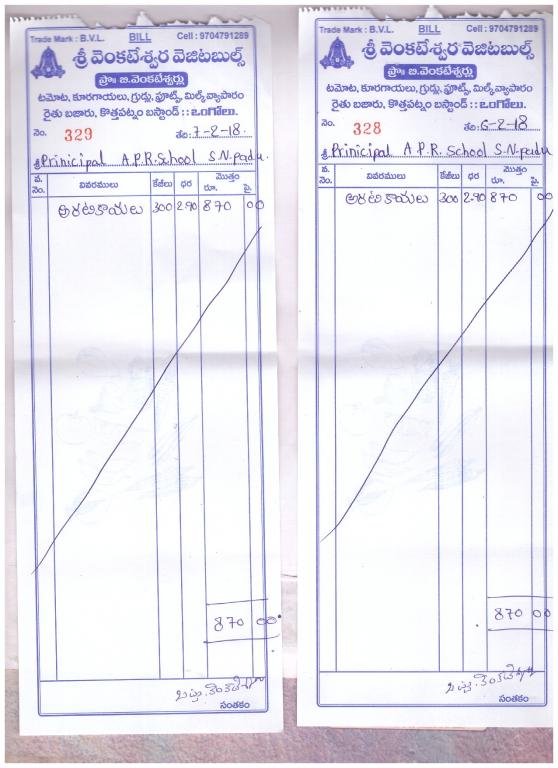 Trade Mark : B.V.L. BILL Cell : 9704791289
శ్రీ వెంకటేశ్వర వెజిటబుల్స్
ప్రొః బి.వెంకటేశ్వర్లు
టమోట, కూరగాయలు, గ్రుడ్లు, ఫ్రూట్స్, మిల్క్ వ్యాపారం
రైతు బజారు, కొత్తపట్నం బస్టాండ్ :: ఒంగోలు.
నెం. 329 తేది: 7-2-18.
శ్రీ Prinicipal A.P.R.School S.N.padu.
వ. నెం. వివరములు కేజీలు ధర మొత్తం రూ. పై.
అరటికాయలు 300 2.90 870 00
870 00
సంతకం
Trade Mark : B.V.L. BILL Cell : 9704791289
శ్రీ వెంకటేశ్వర వెజిటబుల్స్
ప్రొః బి.వెంకటేశ్వర్లు
టమోట, కూరగాయలు, గ్రుడ్లు, ఫ్రూట్స్, మిల్క్ వ్యాపారం
రైతు బజారు, కొత్తపట్నం బస్టాండ్ :: ఒంగోలు.
నెం. 328 తేది: 6-2-18
శ్రీ Prinicipal A.P.R.School S.N.padu
వ. నెం. వివరములు కేజీలు ధర మొత్తం రూ. పై.
అరటికాయలు 300 2.90 870 00
870 00
సంతకం